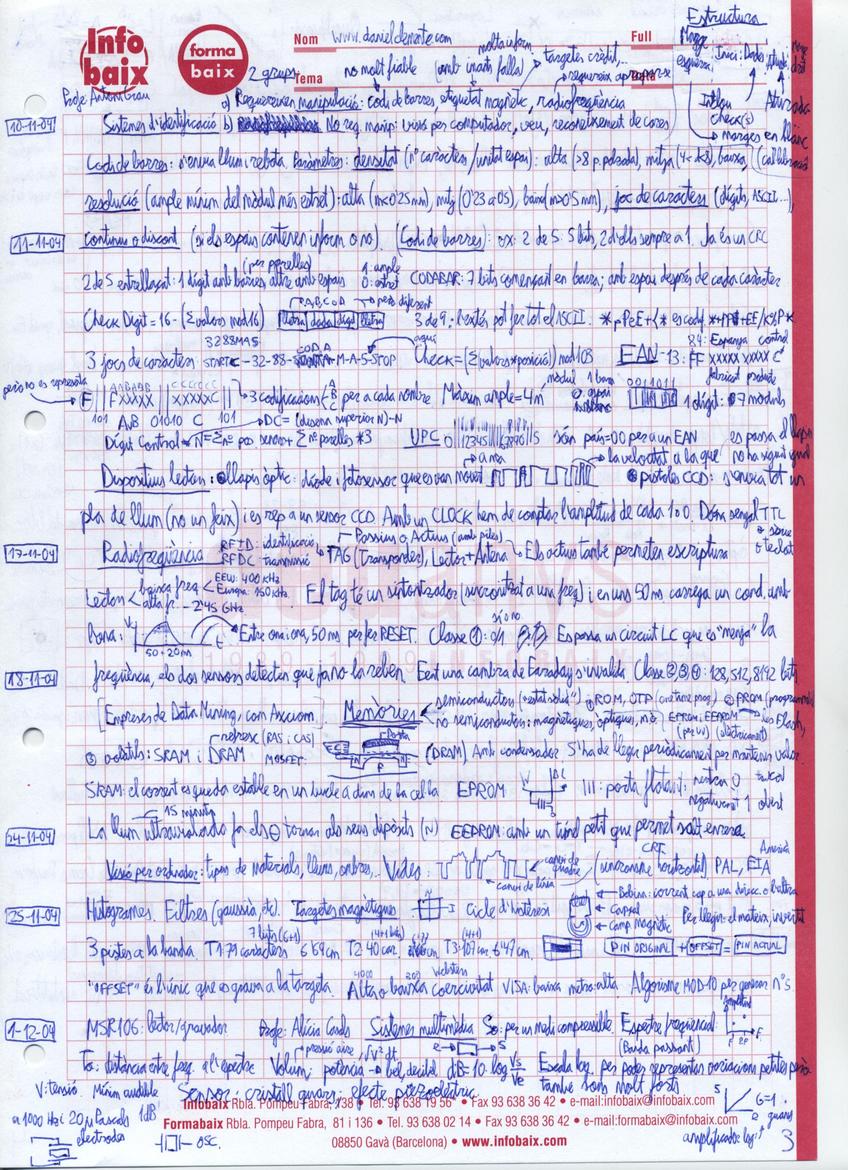 Infobaix
forma baix
Nom www.danielclemente.com
Full
Tema
Estructura
Marge esquerra
Inici
Dada
Profe: Antoni Grau
2 grups
no molt fiable
(amb imants falla)
molta inform.
targetes crèdit...
a) Requereixen manipulació: codi de barres, etiquetat magnètic, radiofreqüència
check(s)
marges en blanc
10-11-04 Sistemes d'identificació b) No req. manip: visió per computador, veu, reconeixement de cares
Codi de barres: s'envia llum i rebota. Paràmetres: densitat (nº caràcters/unitat espai): alta (>8 p. polzada), mitja (4< <8), baixa
resolució (ample mínim del mòdul més estret): alta (m<0'25mm), mitj (0'23 a 0'5), baixa (m>0'5 mm), joc de caràcters (dígits, ASCII...),
11-11-04 continu o discont (si els espais contenen inform o no). (Codi de barres): ex: 2 de 5: 5 bits, 2 d'ells sempre a 1. Ja és un CRC
(per parelles)
2 de 5 entrellaçat: 1 dígit amb barres altre amb espais 1: ample 0: estret CODABAR: 7 bits començant en barra; amb espai després de cada caràcter
A,B,C o D
però diferent
Check Digit = 16 - (Σ valors mod 16) lletra dada dígit lletra 3 de 9: l'estès pot fer tot el ASCII.
3288MAS
84: Espanya control
3 jocs de caràcters: START C-32-88- -M-A-S-STOP Check = (Σ valors * posició) mod 103 EAN-13: FF XXXXX XXXXX C
fabricant producte
però no es representa
AABABB CCCCCC
F FXXXXX XXXXXC 3 codificacions A B C per a cada nombre Màxim ample = 4m
001101
1 dígit: 7 mòduls
101 A,B 01010 C 101 DC = (desena superior N) - N
Dígit Control N = Σ nº pos senars + Σ nº parelles * 3 UPC 0 12345 67890 5 són país=00 per a un EAN
a mà
la velocitat a la que
Dispositius lectors: llapis òptic: díode i fotosensor que es van movent
pistoles CCD: s'envia tot un
pla de llum (no un feix) i es rep a un sensor CCD. Amb un CLOCK hem de comptar l'amplitud de cada 1 o 0. Dóna senyal TTL
o sèrie
o teclat
17-11-04 Radiofreqüència RFID: identificació RFDC: transmissió
Passius o Actius (amb piles)
TAG (Transponder), Lector + Antena Els actius també permeten escriptura
Lectors baixa freq EEUU: 400 kHz Europa: 150 kHz. alta fr. 2'45 GHz
El tag té un sintonitzador (sincronitzat a una freq) i en uns 50 ms carrega un cond. amb
l'ona: V 50+20ms t Entre ona i ona, 50 ms per fer RESET. Classe 1: 0/1
sí o no
Es passa un circuit LC que es "menja" la
18-11-04 freqüència, els dos sensors detecten que ja no la reben. Fent una cambra de Faraday s'invalida Classe 2 3 4: 128, 512, 8192 bits
[Empreses de Data Mining, com Axciom] Memòries semiconductors ("estat sòlid"): ROM, OTP (one time prog.) PROM (programmable)
no semiconductors: magnètiques, òptiques, EPROM, EEPROM Flash,
(per UV) (elèctricament)
refresc (RAS i CAS)
Porta
volàtils: SRAM i DRAM MOSFET: N P N (DRAM) Amb condensador. S'ha de llegir periòdicament per mantenir valor.
SRAM: el corrent es queda estable en un bucle a dins de la cel·la EPROM porta flotant: neutre 0 tancat negativament 1 obert
15 minuts
24-11-04 La llum ultraviolada fa els ⊖ tornar als seus dipòsits (N) EEPROM: amb un túnel petit que permet salt enrera.
Visió per ordinador: tipus de materials, llums, ombres... Vídeo: canvi de quadre canvi de línia
CRT
(sincronisme horitzontal) PAL, EIA
Amèrica
25-11-04 Histogrames. Filtres (gaussià, etc). Targetes magnètiques Cicle d'histèresi
Bobina: corrent cap a una direcc. o l'altra
Capçal
Camp magnètic Per llegir: el mateix, invertit
7 bits (6+1)
3 pistes a la banda. T1: 79 caràcters 6'69cm T2: 40 car. T3: 107 car 6'47cm.
PIN ORIGINAL + OFFSET = PIN ACTUAL
4000 300 Oersteds
"OFFSET" és l'únic que es grava a la targeta. Alta o baixa coercivitat VISA: baixa metro: alta. Algorisme MOD-10 per generar nºs
1-12-04 MSR106: lector/gravador Profe: Alicia Casals Sistemes multimèdia So: per un medi compressible. Espectre freqüencial:
amplitud
(Banda passant)
To: distància entre freq. al l'espectre Volum: potència → bel, decibel dB = 10·log Vs/Ve Escala log. per poder representar variacions petites però
pressió aire, √V² dt
també sons molt forts
V: tensió. Mínim audible
Sensor: cristall quars; efecte piezoelèctric.
a 1000 Hz i 20μ Pascals 1dB
elèctrodes
OSC.
G=1
amplificador log:
Infobaix Rbla. Pompeu Fabra, 138 • Tel. 93 638 19 56 • Fax 93 638 36 42 • e-mail:infobaix@infobaix.com
Formabaix Rbla. Pompeu Fabra, 81 i 136 • Tel. 93 638 02 14 • Fax 93 638 36 42 • e-mail:formabaix@infobaix.com
08850 Gavà (Barcelona) • www.infobaix.com
3